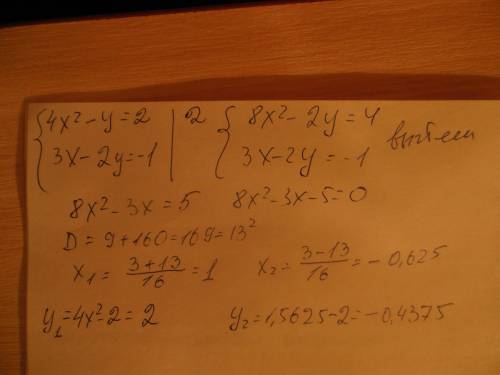 {4x²-y=2 | 2 {8x²-2y=4
{3x-2y=-1 | {3x-2y=-1 вычтем
8x²-3x=5 8x²-3x-5=0
D=9+160=169=13²
x₁=(3+13)/16=1 x₂=(3-13)/16=-0,625
y₁=4x²-2=2 y₂=1,5625-2=-0,4375